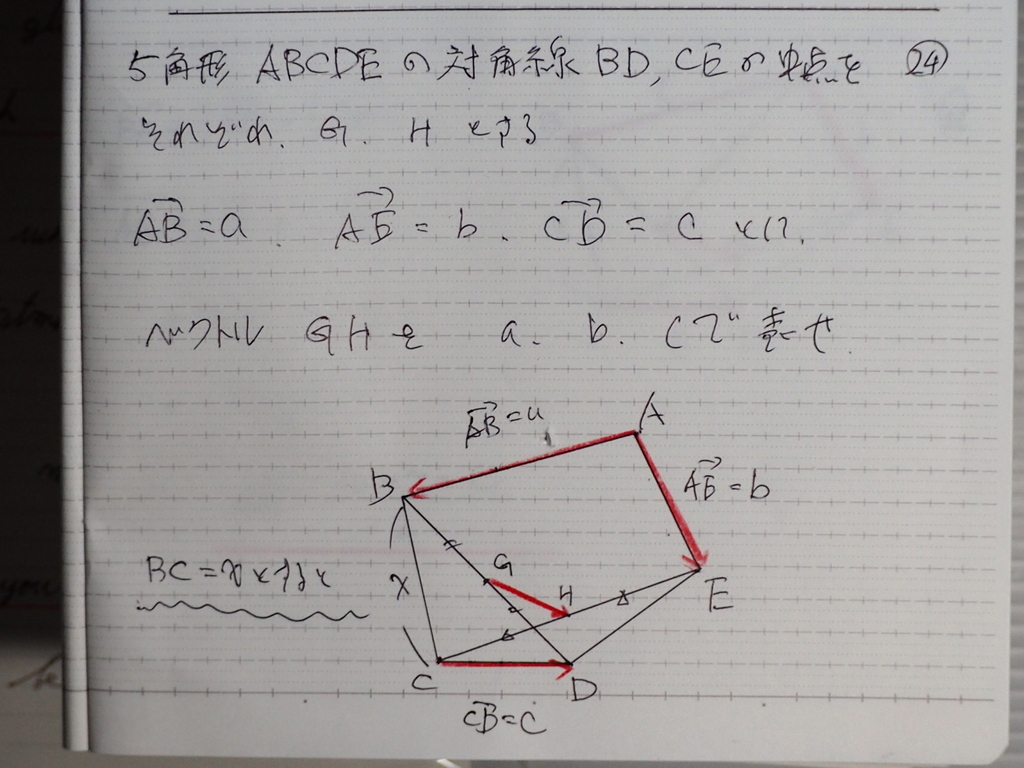 5角形 ABCDE の 対角線 BD, CE の 中点を ㉔
それぞれ、G、H とする
AB→=a、 AE→=b、 CD→=C として、
ベクトル GHを a、b、Cで 表せ
AB→=a
A
B
AE→=b
BC=xとすると
x
G
H
E
C
D
CD→=C